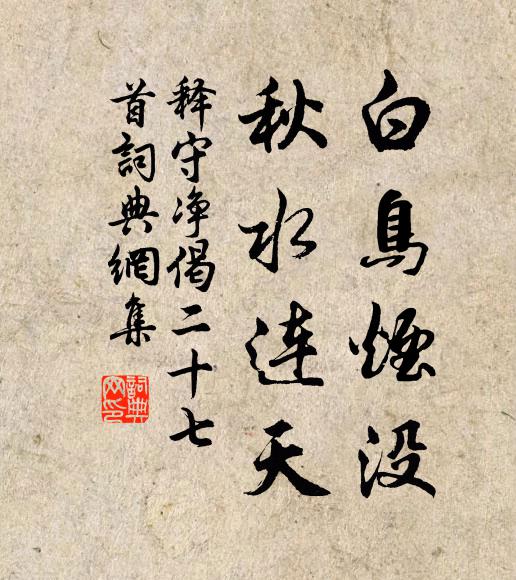 白鳥煙没
秋水連天
释守净偈二十七
首詞典網集
詞典
网印